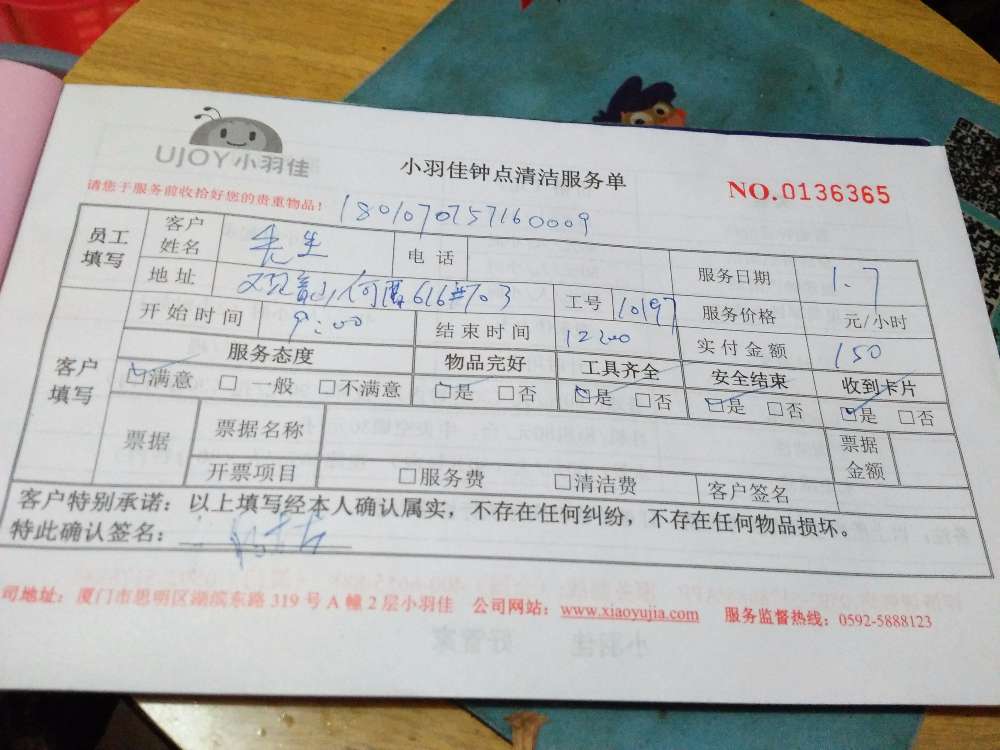 UJOY小羽佳
小羽佳钟点清洁服务单
NO.0136365
请您于服务前收拾好您的贵重物品！
1801070757160009
员工填写 客户姓名 先生 电话 服务日期 1.7
地址 616#703 工号 10197 服务价格 元/小时
客户填写 开始时间 9:00 结束时间 12:00 实付金额 150
服务态度 物品完好 工具齐全 安全结束 收到卡片
☑满意 □一般 □不满意 ☑是 □否 ☑是 □否 ☑是 □否 ☑是 □否
票据 票据名称 票据金额
开票项目 □服务费 □清洁费 客户签名
客户特别承诺：以上填写经本人确认属实，不存在任何纠纷，不存在任何物品损坏。
特此确认签名：
司地址：厦门市思明区湖滨东路 319 号 A 幢 2 层小羽佳 公司网站：www.xiaoyujia.com 服务监督热线：0592-5888123